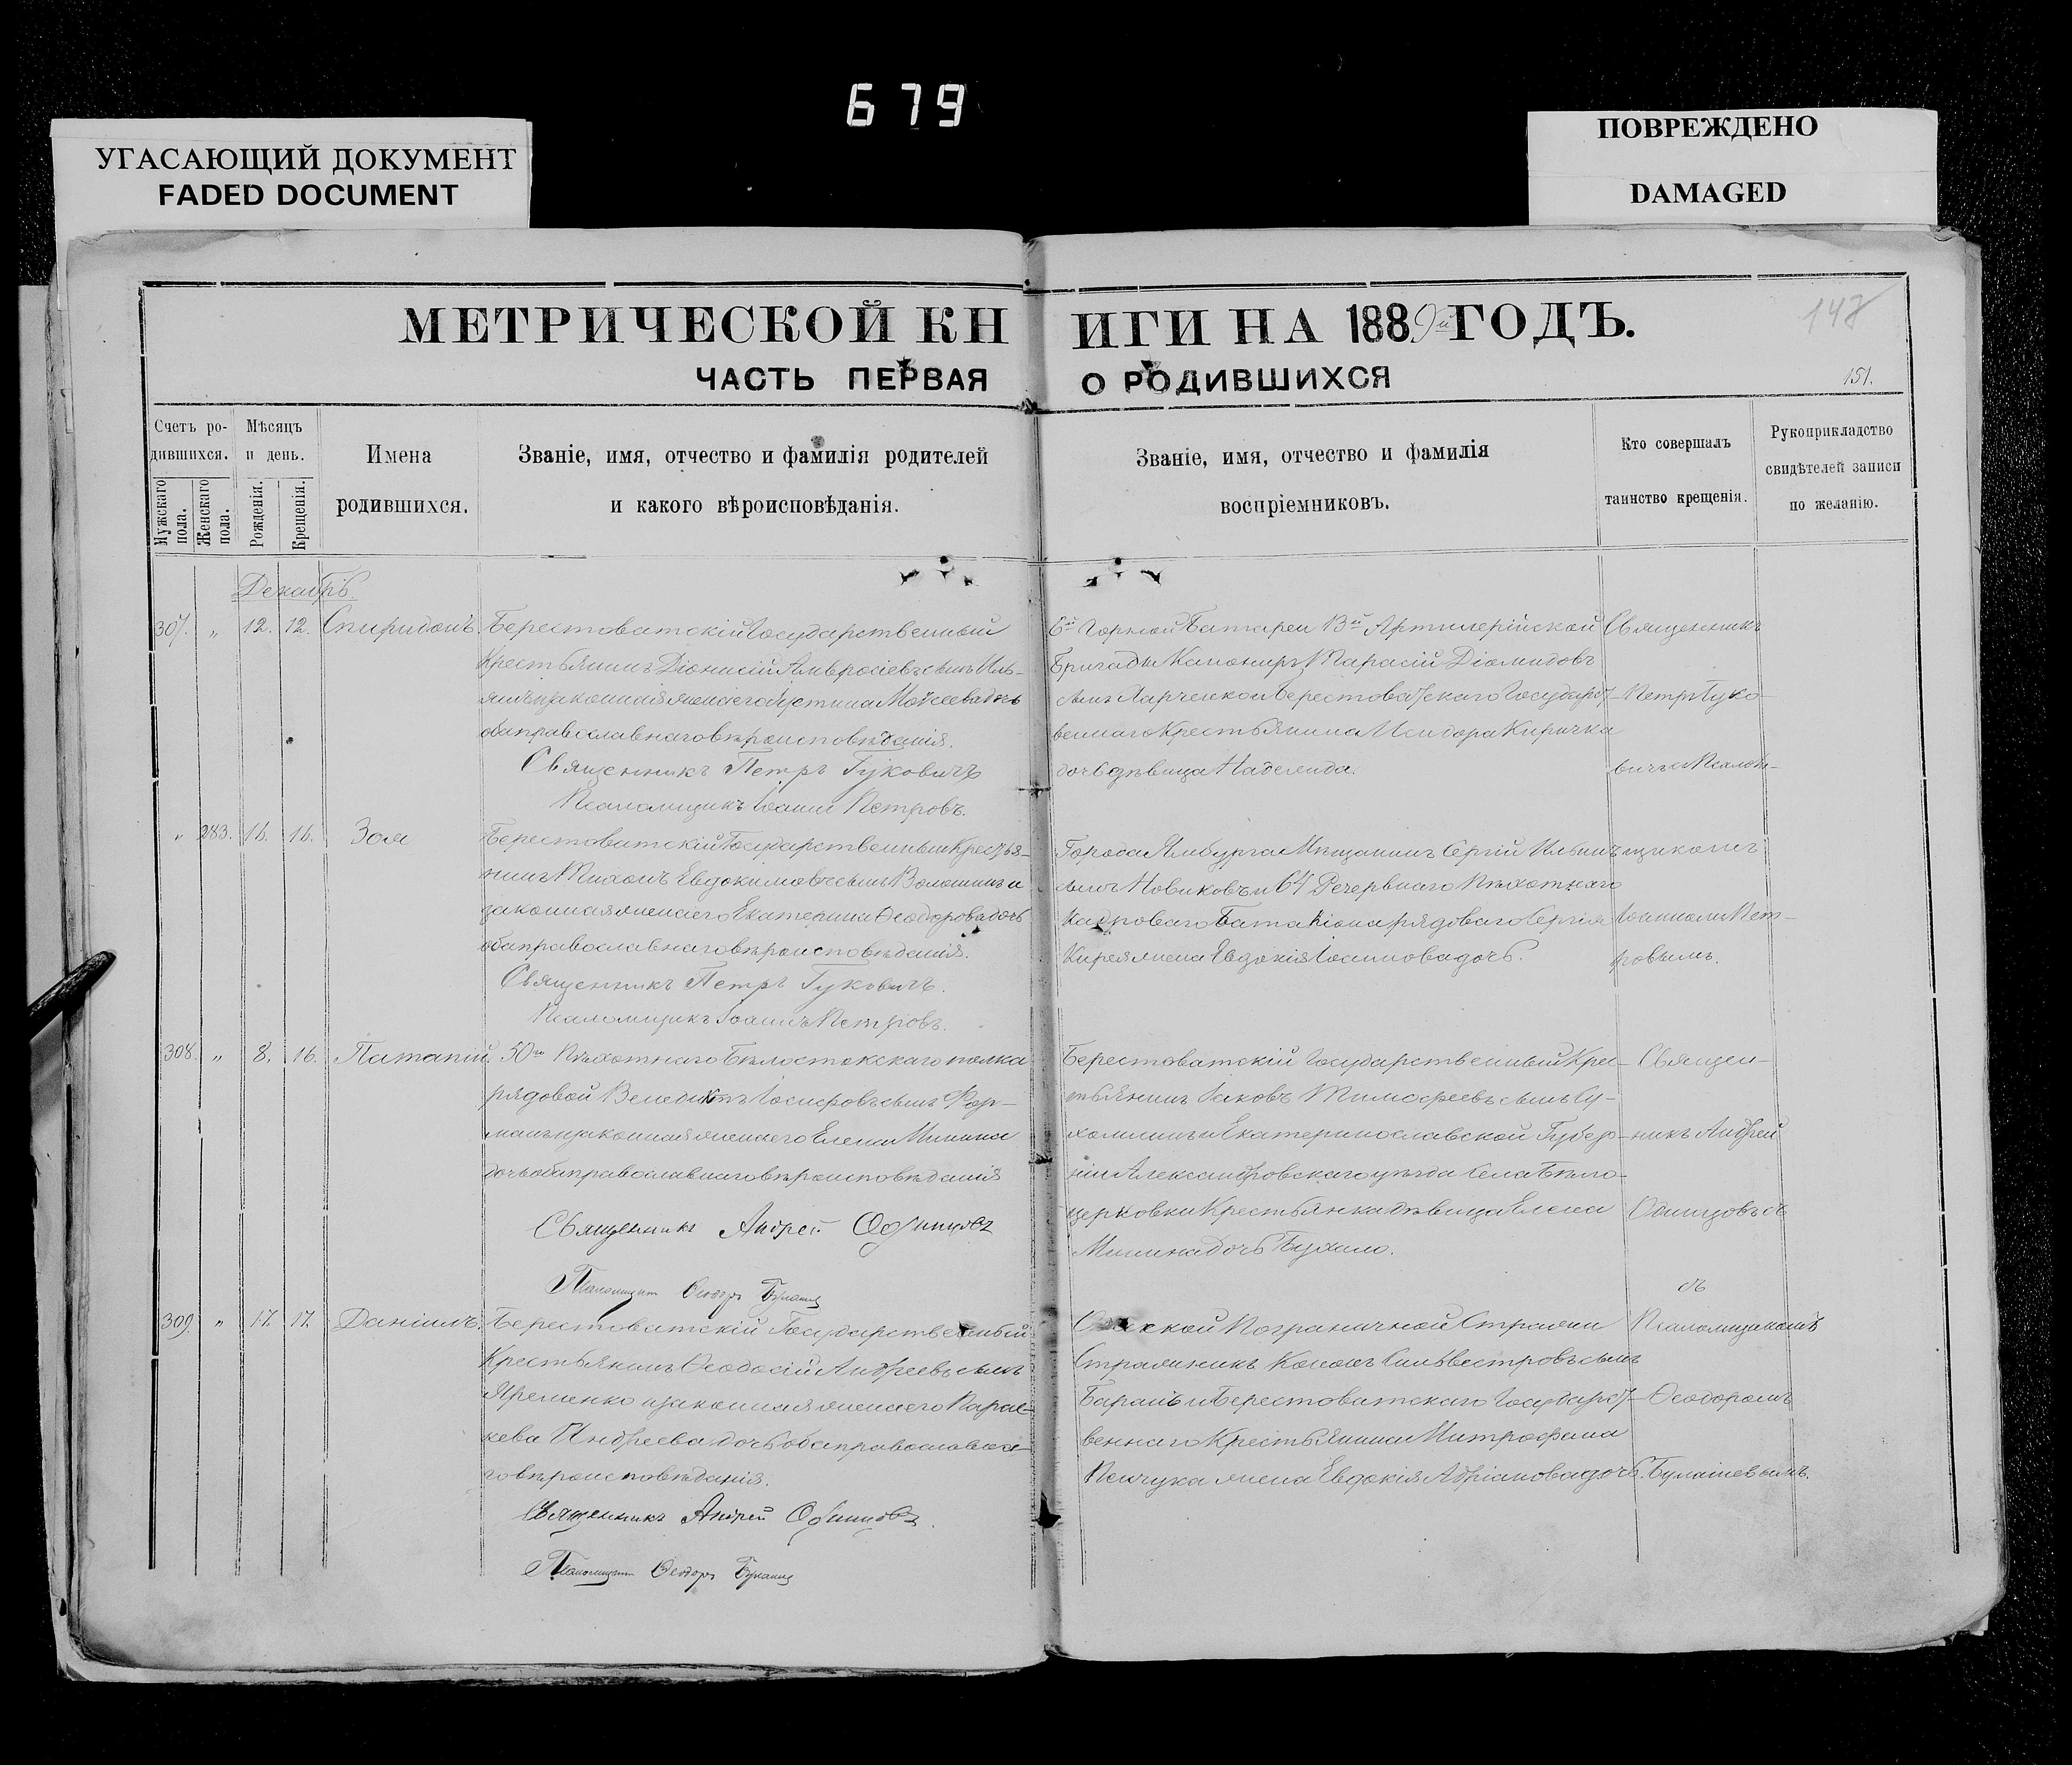 679
УГАСАЮЩИЙ ДОКУМЕНТ
FADED DOCUMENT
ПОВРЕЖДЕНО
DAMAGED
МЕТРИЧЕСКОЙ КНИГИ НА 1889й ГОДЪ.
148
ЧАСТЬ ПЕРВАЯ О РОДИВШИХСЯ
151.
Счетъ ро-
дившихся.
Мужскаго пола.
Женскаго пола.
Мѣсяцъ
и день.
Рожденія.
Крещенія.
Имена
родившихся.
Званіе, имя, отчество и фамилія родителей
и какого вѣроисповѣданія.
Званіе, имя, отчество и фамилія
воспріемниковъ.
Кто совершалъ
таинство крещенія.
Рукоприкладство
свидѣтелей записи
по желанію.
Декабрь.
307. " 12. 12. Спиридонъ.
Берестоватскій Государственный
Крестьянинъ Діонисій Амвросіевъ сынъ
законная жена его Іустина Моѵсеева дочь
оба православнаго вѣроисповѣданія.
Священникъ Петръ Гуковичъ
Псаломщикъ Іоаннъ Петровъ.
6й Горной Батареи 13й Артилерійской
Бригады Канониръ Тарасій Діомидовъ
сынъ Харченко и Берестоватскаго Государст-
веннаго Крестьянина Исидора Киричка
дочь дѣвица Надежда.
Священникъ
Петръ Гуко-
вичъ съ Псалом-
" 283. 16. 16. Зоя
Берестоватскій Государственный Крестья-
нинъ Тихонъ Евдокимовъ сынъ Волошинъ и
законная жена его Екатерина Ѳеодорова дочь
оба православнаго вѣроисповѣданія.
Священникъ Петръ Гуковичъ.
Псаломщикъ Іоаннъ Петровъ.
Города Ямбурга Мѣщанинъ Сергій Ильинъ
сынъ Новиковъ и 64 Резервнаго Пѣхотнаго
Кадроваго Баталіона рядоваго Сергія
Кирея жена Евдокія Іоаннова дочь.
щикомъ
Іоанномъ Пет-
ровымъ.
308. " 8. 16. Патапій
50го Пѣхотнаго Бѣлостокскаго полка
рядовой Венедиктъ Іосифовъ сынъ Фор-
манъ и законная жена его Елена Минина
дочь оба православнаго вѣроисповѣданія
Священникъ Андрей Одинцовъ
Псаломщикъ Ѳеодоръ
Берестоватскій Государственный Крес-
тьянинъ Іаковъ Тимофеевъ сынъ Су-
хомлинъ и Екатеринославской Губер-
ніи Александровскаго уѣзда Села Бѣло-
церковки Крестьянка дѣвица Елена
Минина дочь
Священ-
никъ Андрей
Одинцовъ съ
съ
309. " 17. 17. Даніилъ.
Берестоватскій Государственный
Крестьянинъ Ѳеодосій Андреевъ сынъ
Яременко и законная жена его Парас-
кева Андреева дочь оба православна-
го вѣроисповѣданія.
Священникъ Андрей Одинцовъ.
Псаломщикъ Ѳеодоръ
Пограничной Стражи
Стражникъ Кононъ Сильвестровъ сынъ
Барань и Берестоватскаго Государст-
веннаго Крестьянина Митрофана
жена Евдокія Адріанова дочь.
Псаломщикомъ
Ѳеодоромъ